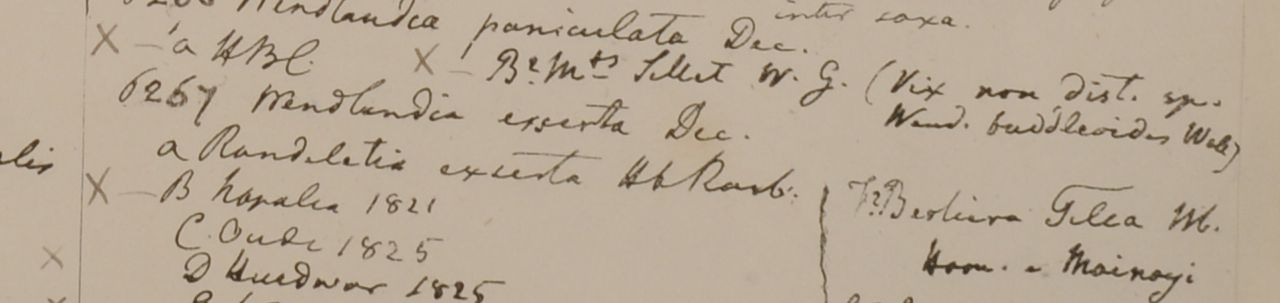 Wendlandia paniculata Dec. inter saxa.
X – a HBC. X – B? Mts Sillet W. G. (Vix non dist. sp.
Wend. buddleoides Wall)
6267 Wendlandia exserta Dec.
a Rondeletia exserta Hb Roxb.
X – B Napalia 1821
C Oude 1825
X D Hurdwar 1825
Tilea W.